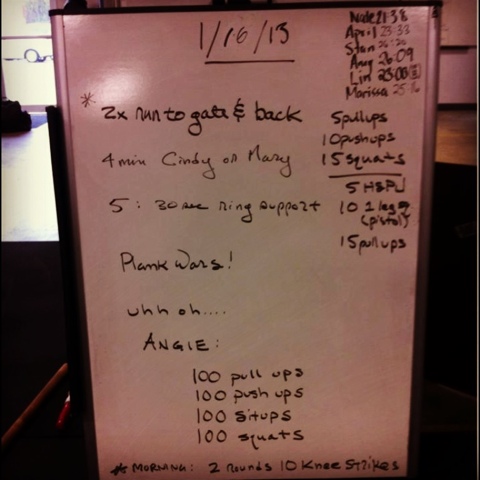 1/16/13
Nate 21:38
April 23:33
Stan 26:20
Amy 26:09
Lin 23:08
Marissa 25:16
* 2x run to gate & back
4 min Cindy or Mary
5 : 30 sec ring support
Plank Wars!
uhh oh....
ANGIE:
100 pull ups
100 push ups
100 situps
100 squats
* MORNING: 2 rounds 10 Knee Strikes
5 pullups
10 pushups
15 squats
5 HSPU
10 1 leg
(pistol)
15 pull ups